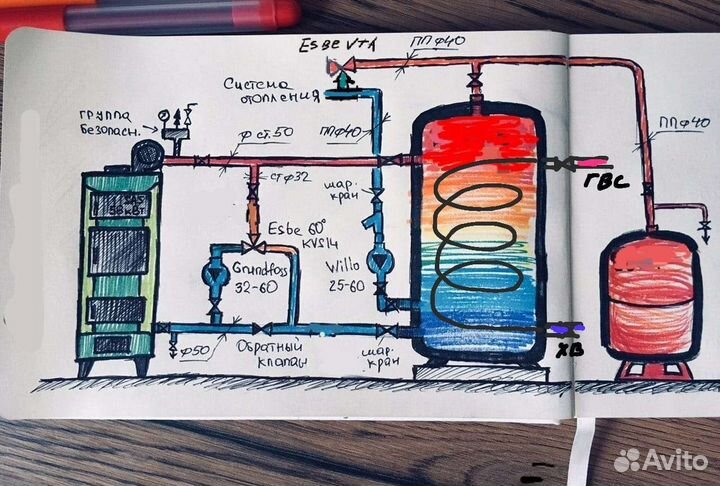 Esbe VTA
ППФ40
Система
отопления
группа
безопасн.
Ф ст.50
ППФ40
ППФ40
ст Ф32
шар.
кран
ГВС
Esbe 60°
KVS14
Grundfoss
32-60
Willo
25-60
Ф50
Обратный
клапан
шар.
кран
ХВ
Avito